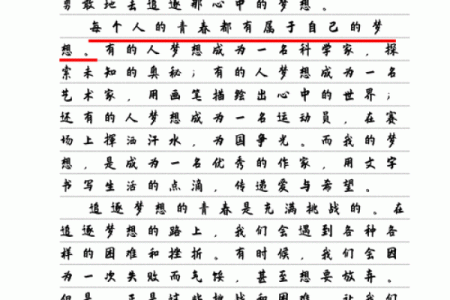 勇敢地去追逐那心中的梦想。
每个人的青春都有属于自己的梦
想。有的人梦想成为一名科学家，探
索未知的奥秘；有的人梦想成为一名
艺术家，用画笔描绘出心中的世界；
还有的人梦想成为一名运动员，在赛
场上挥洒汗水，为国争光。而我的梦
想，是成为一名优秀的作家，用文字
书写生活的点滴，传递爱与希望。
追逐梦想的青春是充满挑战的。在
追逐梦想的路上，我们会遇到各种各
样的困难和挫折。有时候，我们会因
为一次失败而气馁，甚至想要放弃。
但是，正是这些挑战和困难，让我们